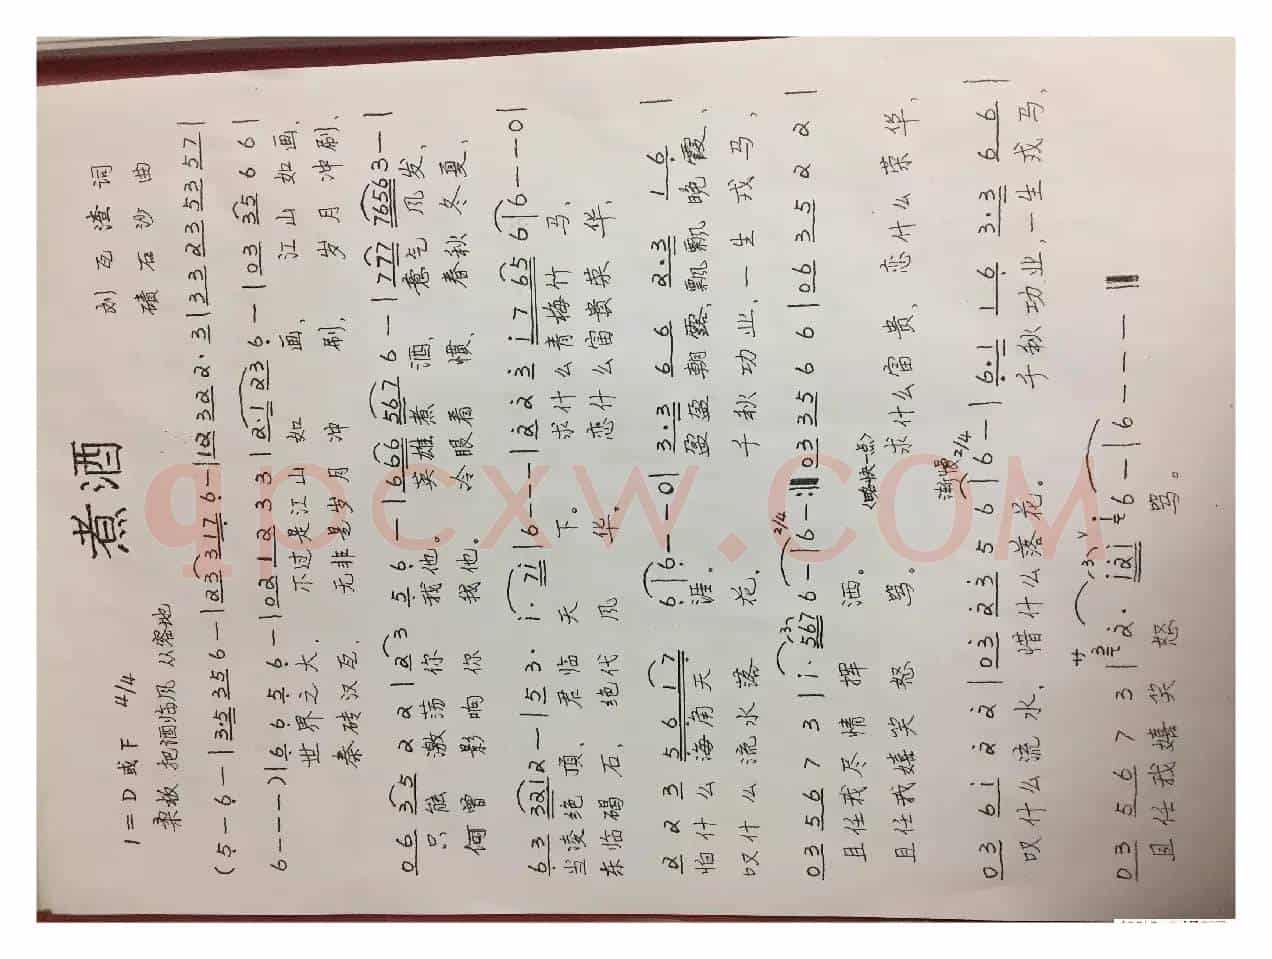 煮酒
刘瓦渣 词
碛石沙 曲
1=D或F 4/4
柔板 把酒临风 从容地
(5-6-|3·5 35 6-|2 3 3 17 6-|12 32 2·3|3 3 23 53 57|
6----)|6 6 5 6-|02 12 3 3|2·1 23 6-|03 35 6 6|
世界之大. 不过是江山如画, 江山如画,
秦砖汉瓦, 无非是岁月冲刷, 岁月冲刷,
06 35 2 2|2 3 5 6--|666 567 6-|777 7656 3-|
只能激荡你我他。 英雄煮酒, 意气风发,
何曾影响你我他。 冷眼看惯, 春秋冬夏,
63 3212-|53· i·7i|6---|2 2 3 i 7 65 6|6---0|
当凌绝顶、君临天下。 求什么青梅竹马,
东临碣石,绝代风华。 恋什么富贵荣华,
2 2 3 5 6 17 6|6---0|3·3 66 2·3 16|
怕什么海角天涯。 盈盈朝露,飘飘晚霞,
叹什么流水落花. 千秋功业,一生戎马,
03 56 7 3|i·567 6-|6-:‖03 35 6 6|06 35 2 2|
且任我尽情挥洒。 (略快一点) 求什么富贵, 恋什么荣华,
且任我嬉笑怒骂。
渐慢 2/4
03 6i 2 2|03 23 5 6|6-|6·1 16 3·3 66|
叹什么流水, 惜什么落花。 千秋功业,一生戎马,
03 56 7 3|2· i2i 6-|6---‖
且任我嬉笑怒骂。
qpcxw.com